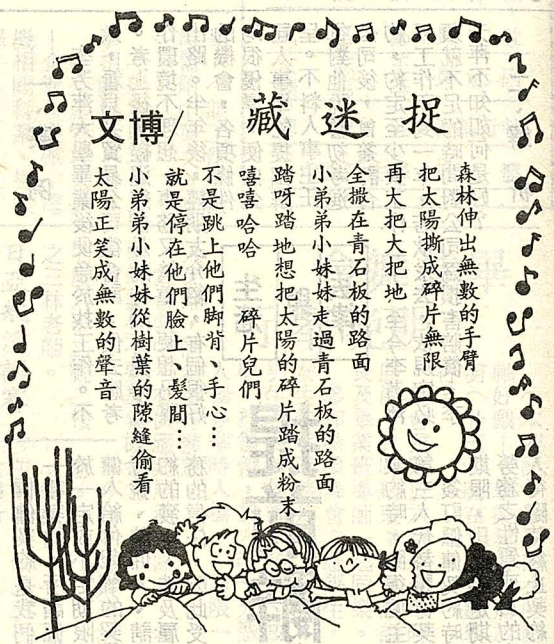 捉迷藏
/博文
森林伸出無數的手臂
把太陽撕成碎片無限
再大把大把地
全撒在青石板的路面
小弟弟小妹妹走過青石板的路面
踏呀踏地想把太陽的碎片踏成粉末
嘻嘻哈哈 碎片兒們
不是跳上他們脚背、手心…
就是停在他們臉上、髮間…
小弟弟小妹妹從樹葉的隙縫偷看
太陽正笑成無數的聲音